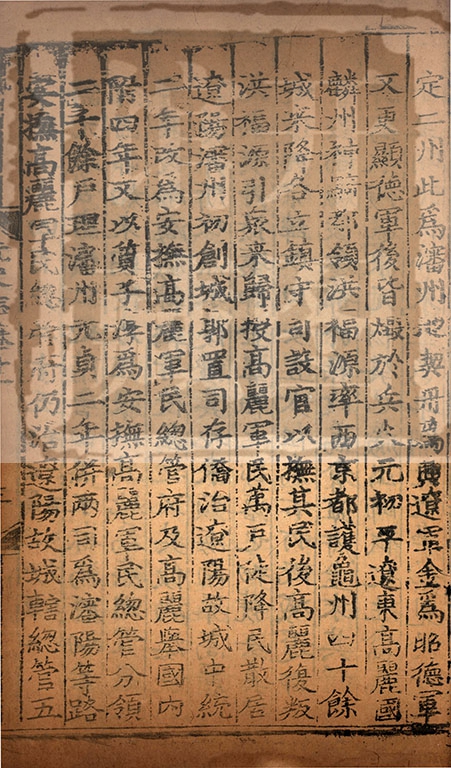 定二州此為瀋州地契丹為興遼軍金為昭德軍
又更顯德軍後皆燬於兵火元初平遼東高麗國
麟州神騎都領洪福源率西京都護龜州四十餘
城來降各立鎮守司設官以撫其民後高麗復叛
洪福源引衆來歸授高麗軍民萬戶徙降民散居
遼陽瀋州初創城郭置司存僑治遼陽故城中統
二年改為安撫高麗軍民總管府及高麗舉國內
附四年又以質子淳為安撫高麗軍民總管分領
二千餘戶理瀋州元貞二年併兩司為瀋陽等路
安撫高麗軍民總管府仍治遼陽故城轄總管五